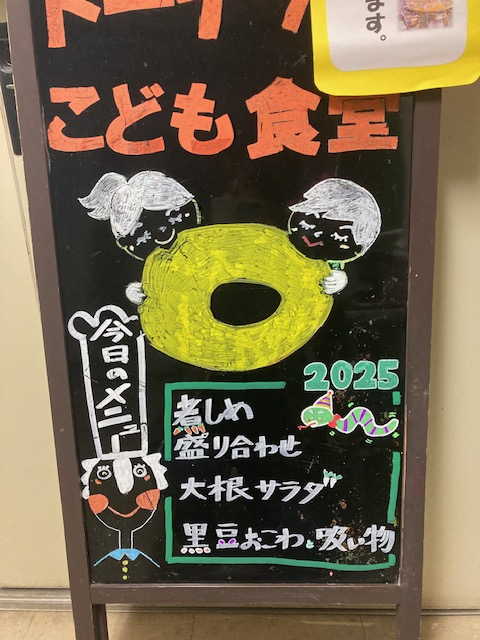 ます。
こども食堂
2025
今日のメニュー
煮しめ
盛り合わせ
大根サラダ
黒豆おこわと吸い物